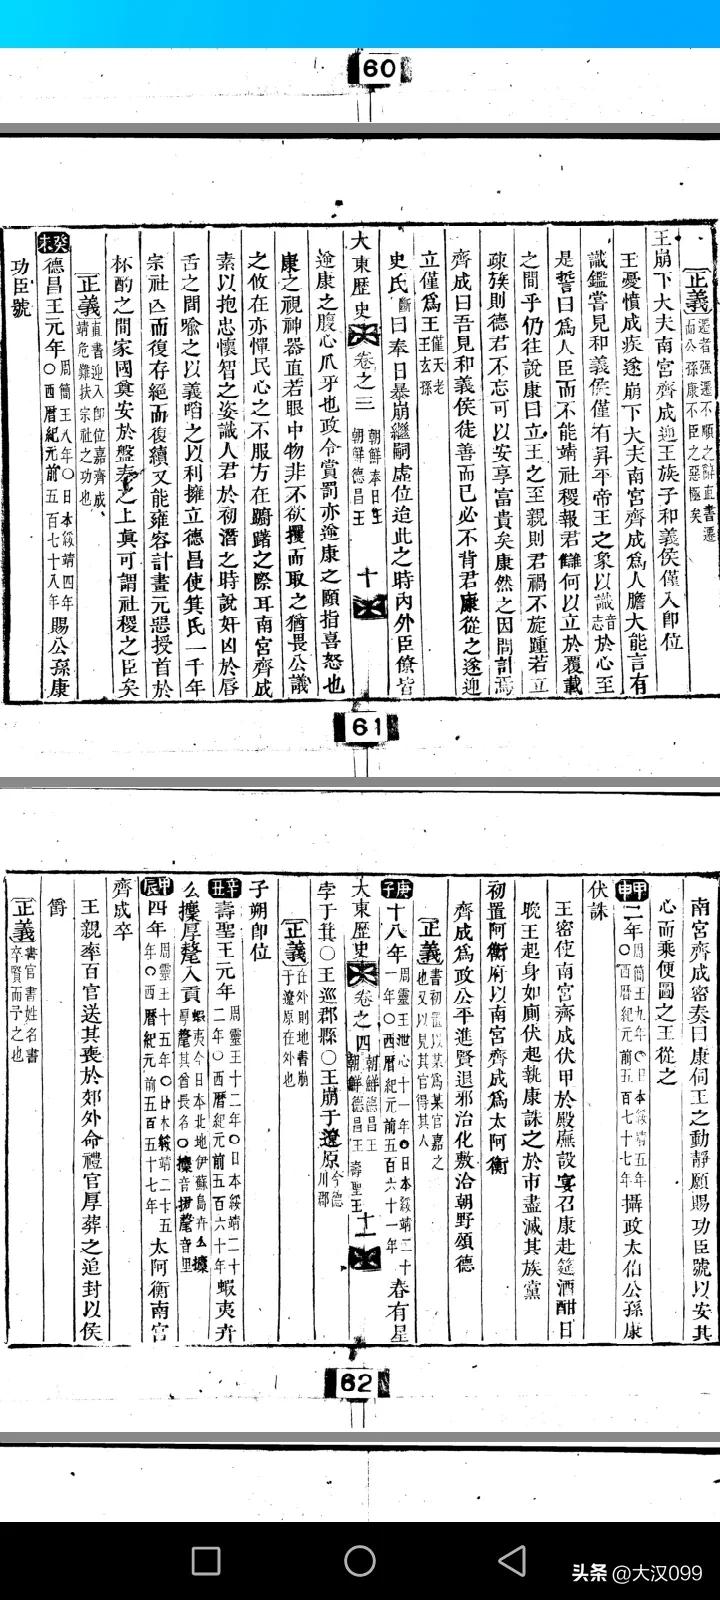 60
正義
遷者強遷不順之辭直書遷
而公孫康不臣之惡極矣
王崩下大夫南宮齊成迎王族子和義侯僅入卽位
王憂憤成疾遂崩下大夫南宮齊成爲人膽大能言有
識鑑嘗見和義侯僅有昇平帝王之象以識音志於心至
是誓曰爲人臣而不能靖社稷報君讎何以立於覆載
之間乎仍往說康曰立王之至親則君禍不旋踵若立
疎族則德君不忘可以安享富貴矣康然之因問計焉
齊成曰吾見和義侯徒善而已必不背君康從之遂迎
立僅爲王僅天老王玄孫
史氏斷曰奉日暴崩繼嗣虛位迨此之時內外臣僚皆
大東歷史 卷之三 朝鮮奉日王 朝鮮德昌王 十
逾康之腹心爪牙也政令賞罰亦逾康之頤指喜怒也
康之視神器直若眼中物非不欲攫而取之猶畏公議
之攸在亦憚民心之不服方在躕躇之際耳南宮齊成
素以抱忠懷智之姿識人君於初潛之時說奸凶於唇
舌之間喩之以義啗之以利擁立德昌使箕氏一千年
宗社亡而復存絕而復續又能雍容計畫元惡授首於
杯酌之間家國奠安於盤泰之上眞可謂社稷之臣矣
正義
直書迎入卽位嘉齊成
靖危難扶宗社之功也
癸未
德昌王元年○周簡王八年○日本綏靖四年○西曆紀元前五百七十八年賜公孫康
功臣號
61
南宮齊成密奏曰康伺王之動靜願賜功臣號以安其
心而乘便圖之王從之
甲申
二年○周簡王九年○日本綏靖五年○西曆紀元前五百七十七年攝政太伯公孫康
伏誅
王密使南宮齊成伏甲於殿廡設宴召康赴筵酒酣日
晩王起身如廁伏起執康誅之於市盡滅其族黨
初置阿衡府以南宮齊成爲太阿衡
齊成爲政公平進賢退邪治化敷洽朝野頌德
正義
書初置以某爲某官嘉之
也又以見其官得其人
庚子
十八年周靈王泄心十一年○日本綏靖二十一年○西曆紀元前五百六十一年春有星
大東歷史 卷之四 朝鮮德昌王 朝鮮德昌王 壽聖王 十一
孛于箕○王巡郡縣○王崩于遼原今德川郡
正義
在外則地書崩
于遼原在外也
子朔卽位
辛丑
壽聖王元年周靈王十二年○日本綏靖二十二年○西曆紀元前五百六十年蝦夷卉
么攗厚氂入貢蝦夷今日本北地伊蘇島卉么攗厚氂其酋長名○攗音伊氂音里
甲辰
四年周靈王十五年○日本綏靖二十五年○西曆紀元前五百五十七年太阿衡南宮
齊成卒
王親率百官送其喪於郊外命禮官厚葬之追封以侯
爵
正義
書官書姓名書
卒賢而予之也
62
头条 @大汉099